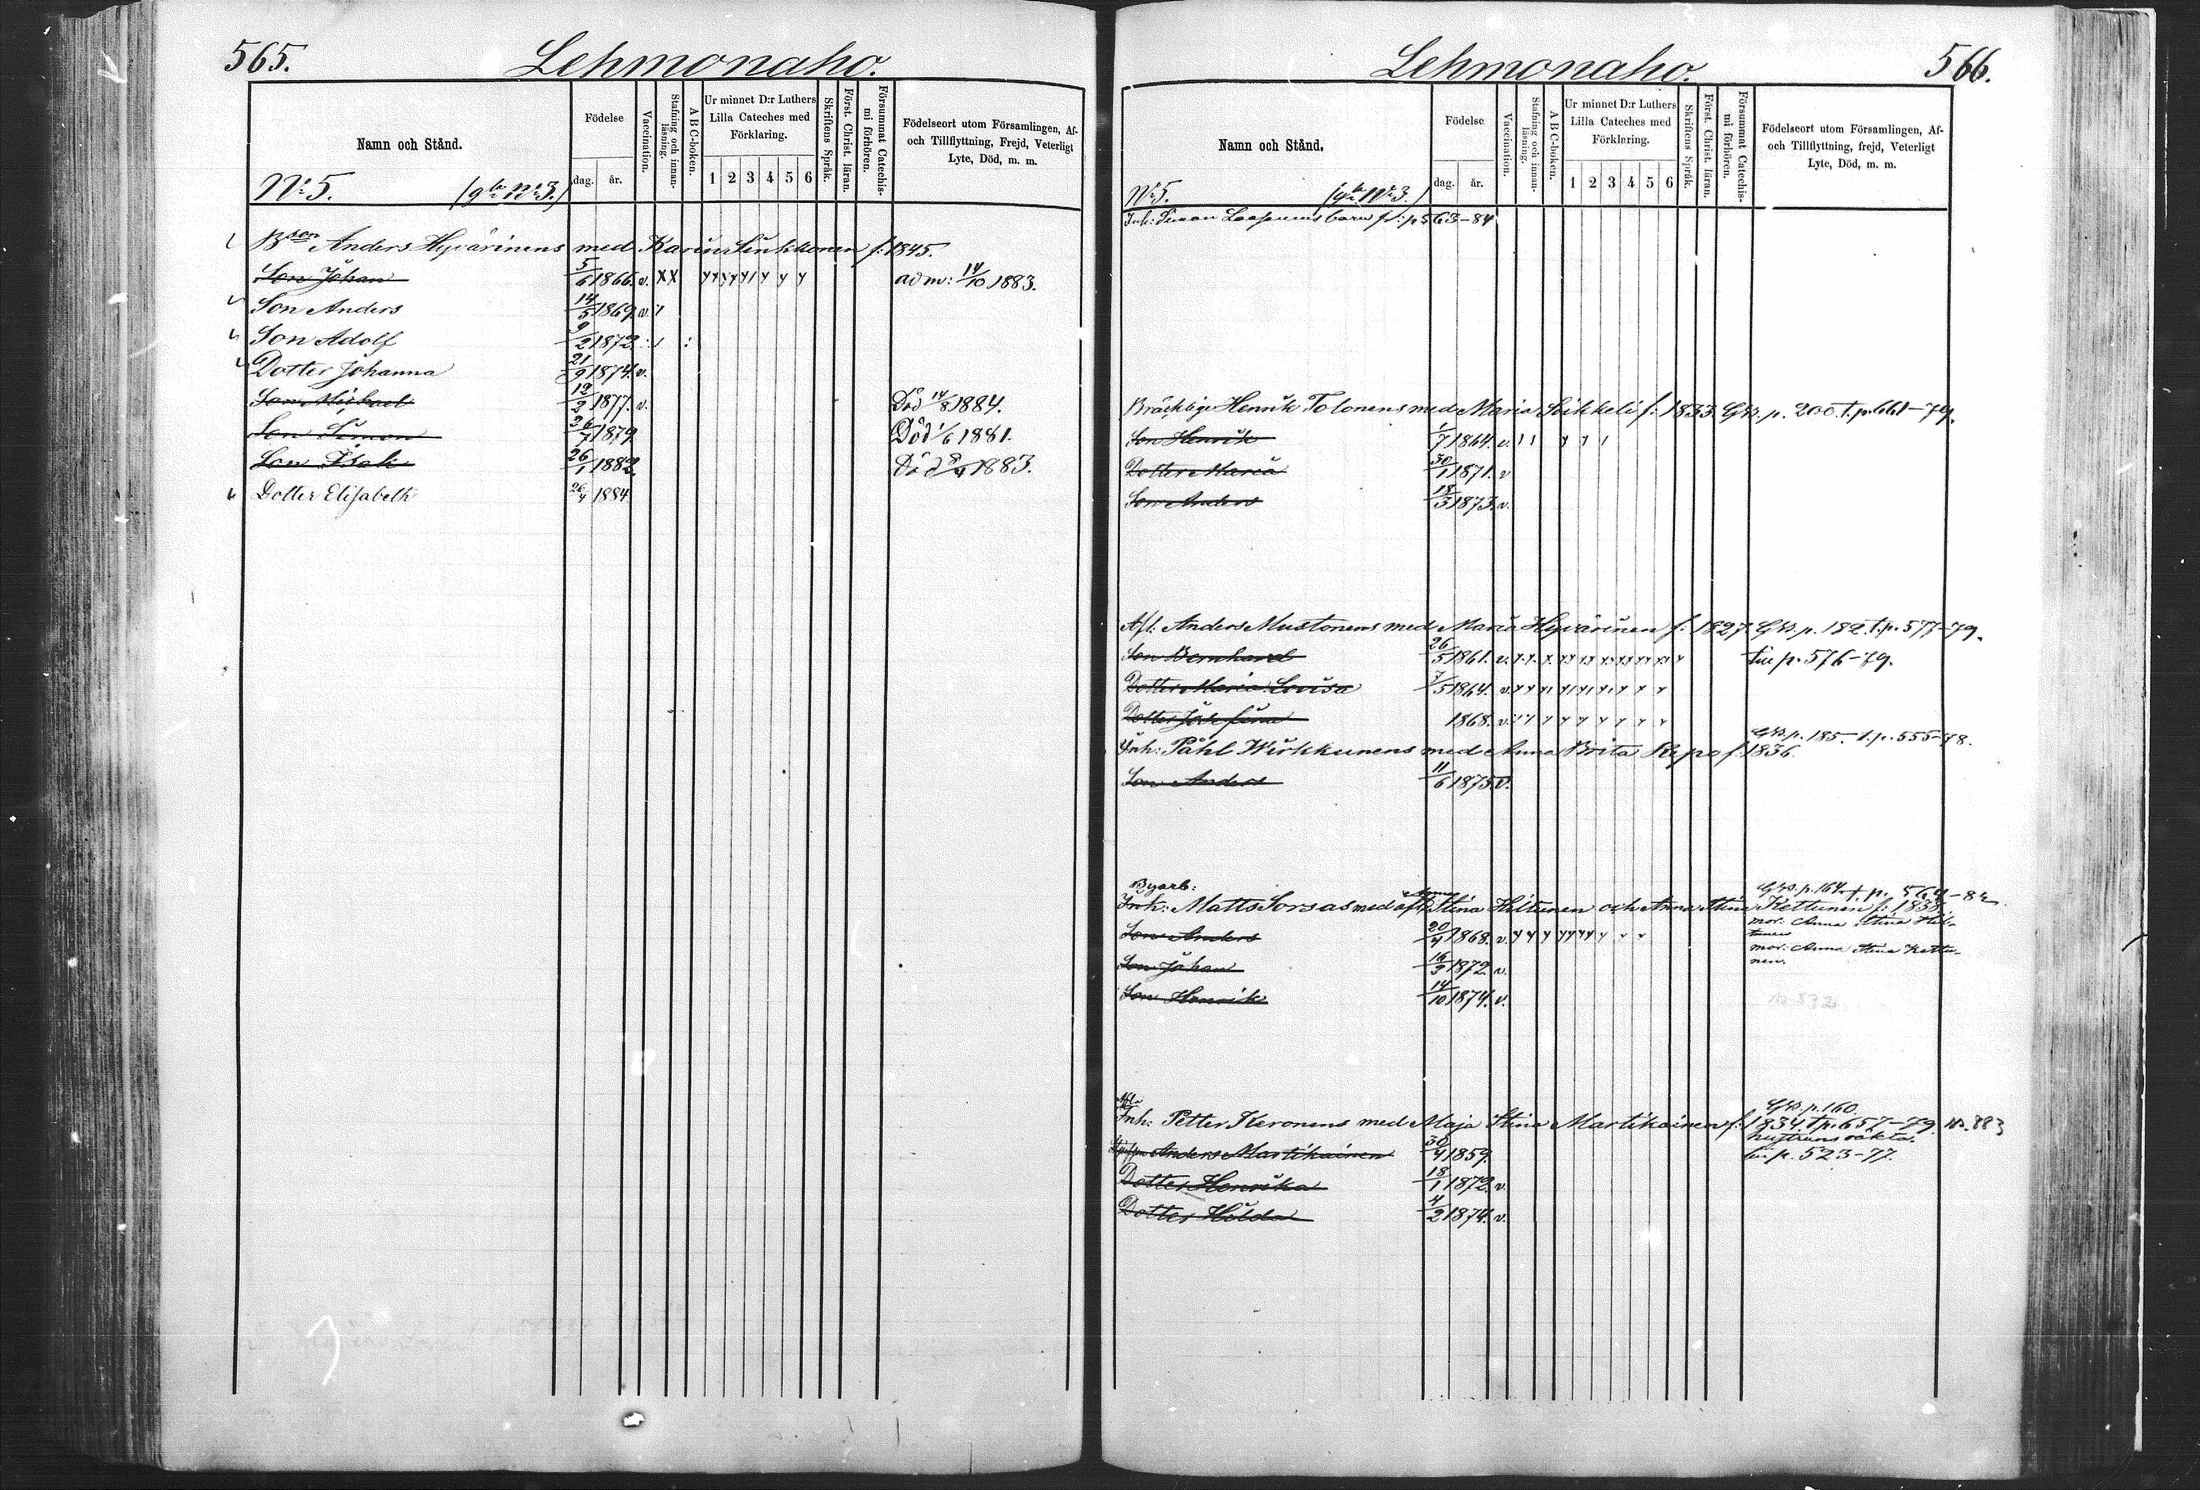 565.
Lehmonaho.
Namn och Stånd.
Födelse
dag. år.
Vaccination.
Stafning och innanläsning.
A B C-boken.
Ur minnet D:r Luthers Lilla Cateches med Förklaring.
1 2 3 4 5 6
Skriftens Språk.
Först. Christ. läran.
Försummat Catechismi förhören.
Födelseort utom Församlingen, Af- och Tillflyttning, Frejd, Veterligt Lyte, Död, m. m.
No 5. No 3.)
Bson Anders Hyvärinens med Karin Sinkkonen f: 1845.
Son Johan 5/6 1866. v. adm: 14/10 1883.
Son Anders 14/5 1869. v.
Son Adolf 9/2 1872.
Dotter Johanna 21/9 1874. v.
Son Michael 19/2 1877. v. Död 14/8 1884.
Son Simon 1879 Död 1/6 1881.
Son Isak 26/1 1882 Död 1883.
Dotter Elisabeth 26/4 1884
566.
Lehmonaho.
Namn och Stånd.
Födelse
dag. år.
Vaccination.
Stafning och innanläsning.
A B C-boken.
Ur minnet D:r Luthers Lilla Cateches med Förklaring.
1 2 3 4 5 6
Skriftens Språk.
Först. Christ. läran.
Försummat Catechismi förhören.
Födelseort utom Församlingen, Af- och Tillflyttning, frejd, Veterligt Lyte, Död, m. m.
No 5. No 3.)
Inh: barn p 563-84
Bräcklige Henrik Tolonens med Maria Soikkeli f: 1833. p. 200. t. p. 661-79.
Son Henrik 1/7 1864. v.
Dotter Maria 30/1 1871. v
Son Anders 18/3 1873. v.
Afl: Anders Mustonens med Maria Hyvärinen f: 1827. p. 182. t. p. 577-79.
Son Bernhard 26/5 1861. v. p. 576-79.
Dotter Maria Lovisa 7/5 1864. v.
Dotter Josefina 1868. v.
p. 185. t. p. 555-78.
Inh: Påhl Wirkkunens med Anna Brita Repo f: 1836.
Son Anders 11/6 1875 v.
Byarb: p. 164. t. p. 564-82
Inh: Matts Sorsas med afl: Anna Stina Hiltunen och Anna Stina Kettunen f: 1838.
mor: Anna Stina Hiltunen
Son Anders 20/4 1868. v.
mor: Anna Stina Kettunen.
Son Johan 16/3 1872. v.
Son Henrik 14/10 1874. v.
Afl: p. 160.
Inh: Petter Keronens med Maja Stina Martikainen f: 1834. t. p. 657-79.
Anders Martikainen 30/4 1859. p. 523-77.
Dotter Henrika 18/1 1872. v.
Dotter Hilda 4/2 1874. v.